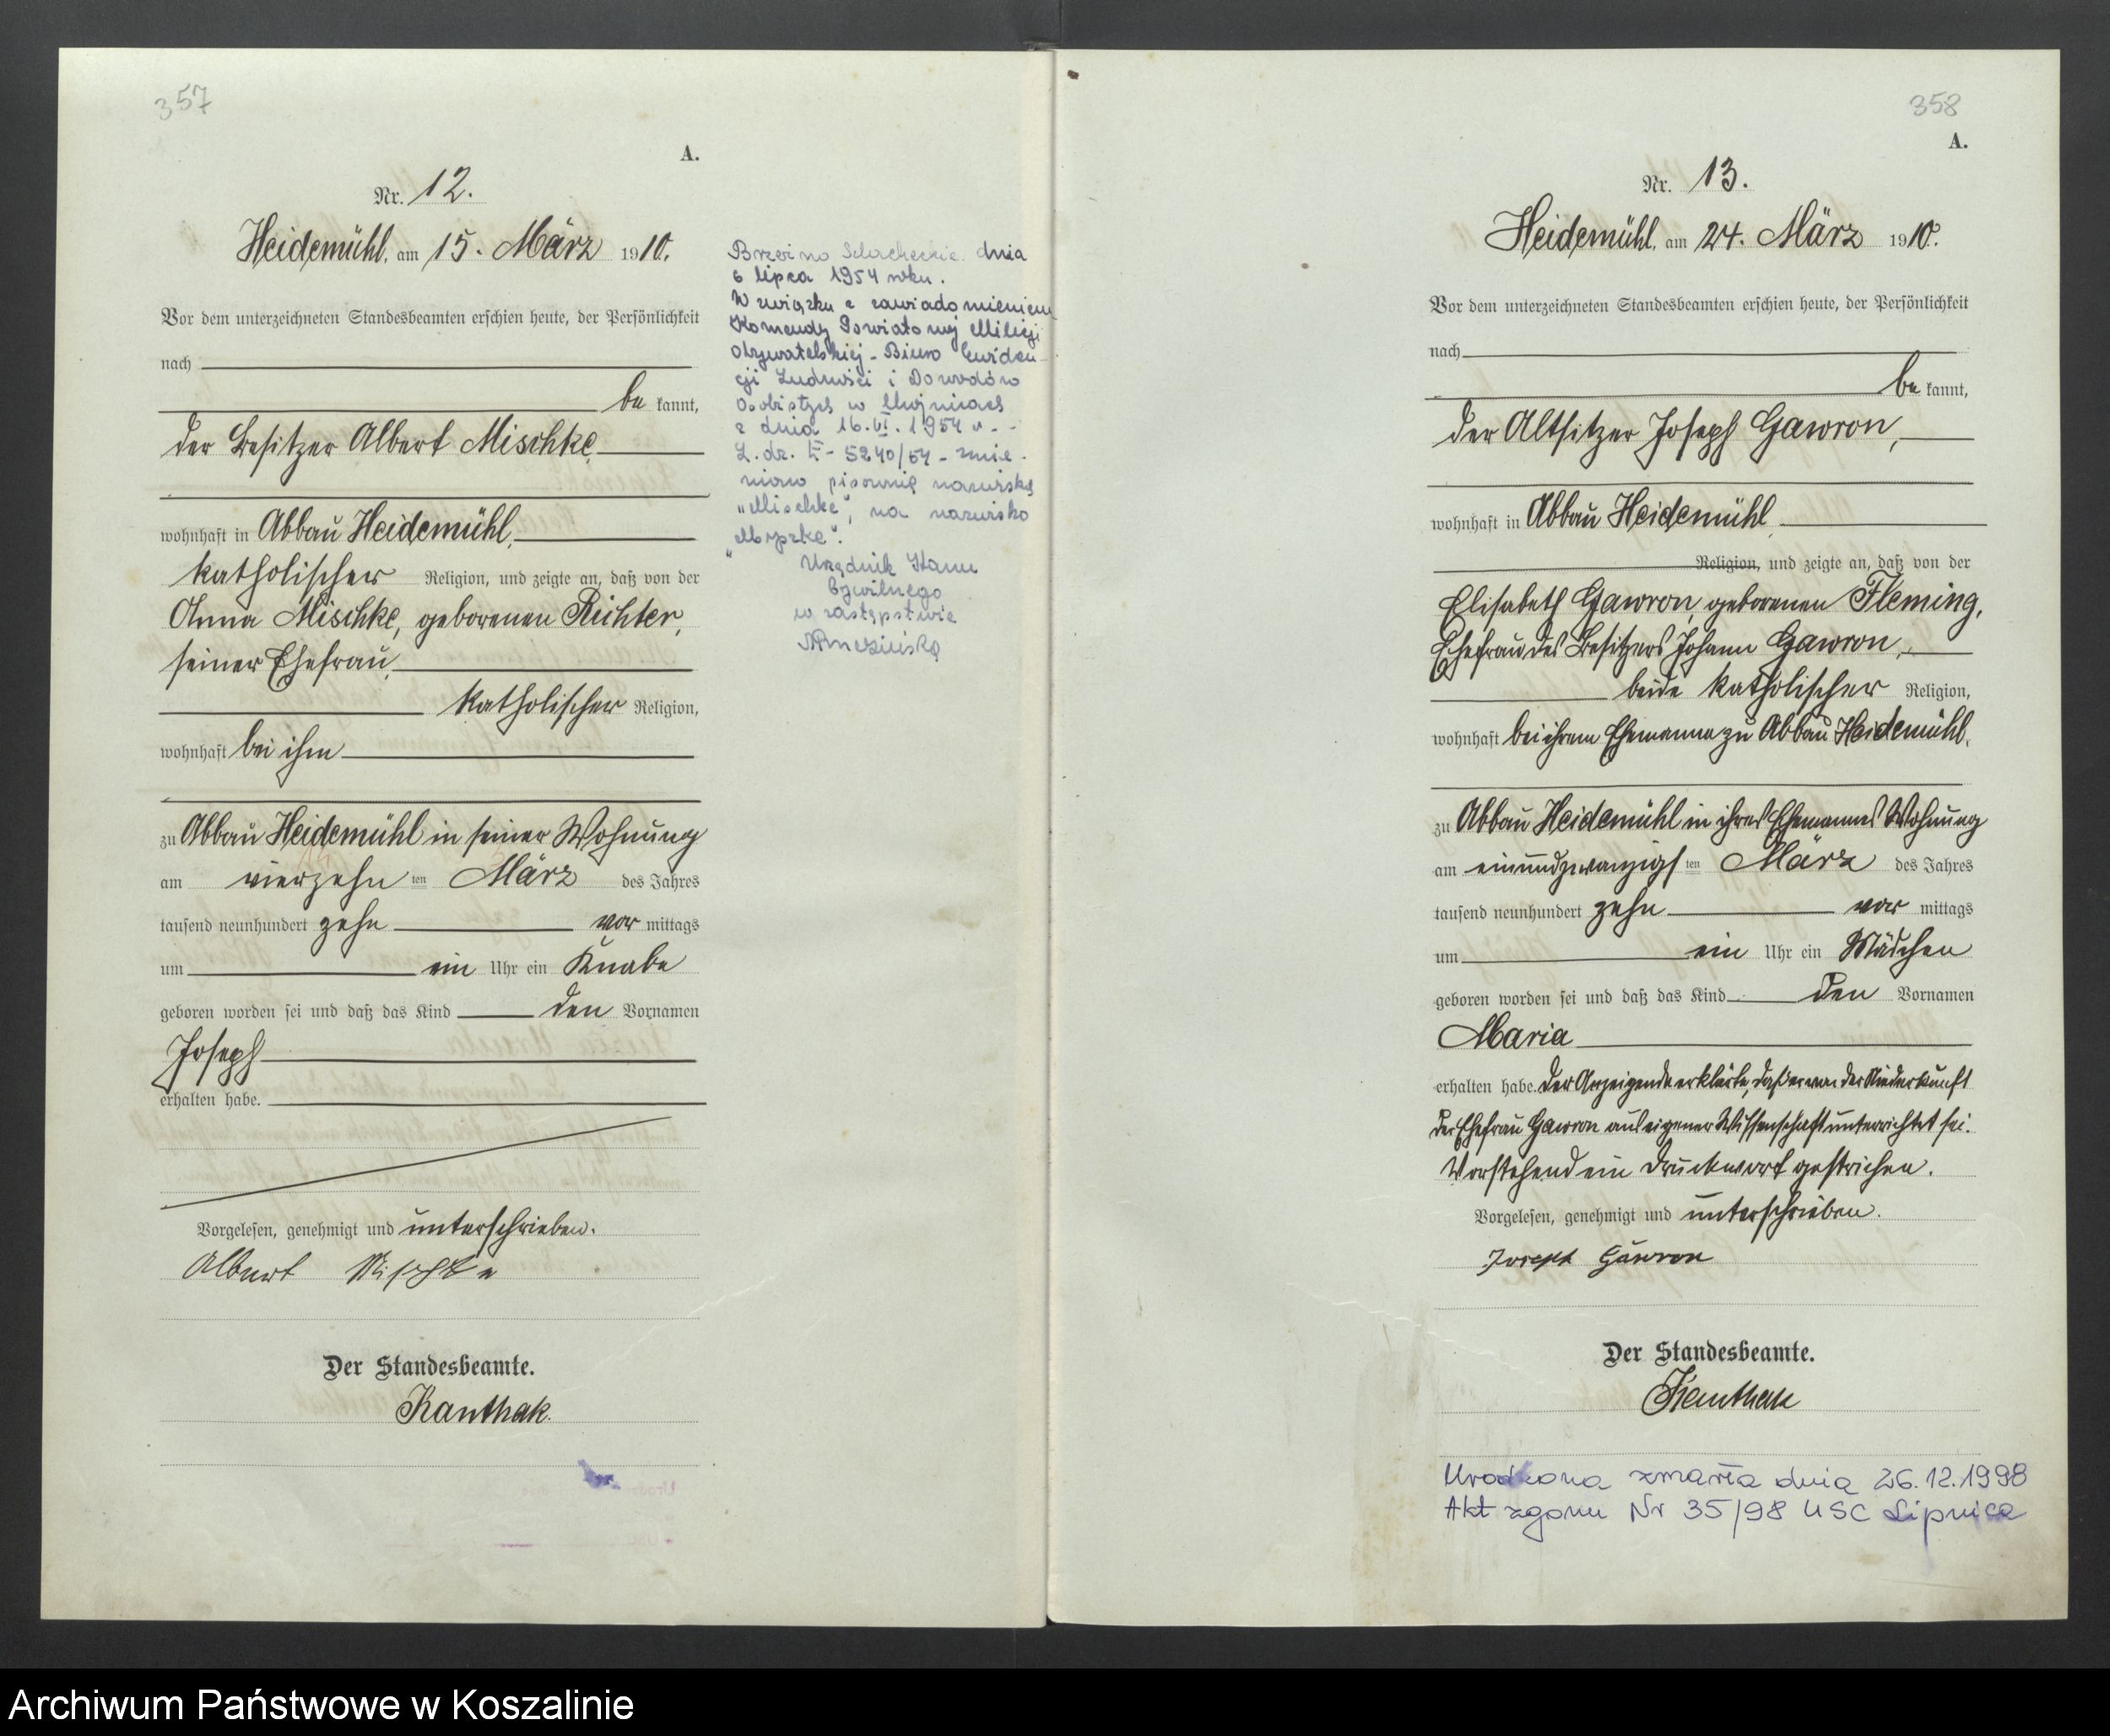 357
A.
Nr. 12.
Heidemühl, am 15. März 1910.
Vor dem unterzeichneten Standesbeamten erschien heute, der Persönlichkeit
nach
be kannt,
der Besitzer Albert Mischke,
wohnhaft in Abbau Heidemühl,
katholischer Religion, und zeigte an, daß von der
Anna Mischke, geborenen Richter,
seiner Ehefrau,
katholischer Religion,
wohnhaft bei ihm
zu Abbau Heidemühl in seiner Wohnung
am vierzehn ten März des Jahres
tausend neunhundert zehn vor mittags
um ein Uhr ein Knabe
geboren worden sei und daß das Kind den Vornamen
Joseph
erhalten habe.
Vorgelesen, genehmigt und unterschrieben.
Albert Mischke
Der Standesbeamte.
Kanthak.
dnia
6 lipca 1954 roku.
W związku z zawiadomieniem
Komendy Powiatowej Milicji
Obywatelskiej - Biuro Ewiden-
cji Ludności i Dowodów
Osobistych w Chojnicach
z dnia 16.VI.1954 r. -
L.dz. 5240/54 - zmie-
niono pisownię nazwiska
"Mischke", na nazwisko
"Myszke".
Urzędnik Stanu
Cywilnego
w zastępstwie
358
A.
Nr. 13.
Heidemühl, am 24. März 1910.
Vor dem unterzeichneten Standesbeamten erschien heute, der Persönlichkeit
nach
be kannt,
der Altsitzer Joseph Gawron,
wohnhaft in Abbau Heidemühl,
Religion, und zeigte an, daß von der
Elisabeth Gawron, geborenen Fleming,
Ehefrau des Besitzers Johann Gawron,
beide katholischer Religion,
wohnhaft bei ihrem Ehemanne zu Abbau Heidemühl,
zu Abbau Heidemühl in ihres Ehemannes Wohnung
am einundzwanzigs ten März des Jahres
tausend neunhundert zehn vor mittags
um ein Uhr ein Mädchen
geboren worden sei und daß das Kind den Vornamen
Maria
erhalten habe. Der Anzeigende erklärte, daß er von der Niederkunft
der Ehefrau Gawron aus eigener Wissenschaft unterrichtet sei.
Vorstehend ein Druckwort gestrichen.
Vorgelesen, genehmigt und unterschrieben.
Joseph Gawron
Der Standesbeamte.
Kanthak
Urodzona zmarła dnia 26.12.1998
Akt zgonu Nr 35/98 USC Lipnica
Archiwum Państwowe w Koszalinie